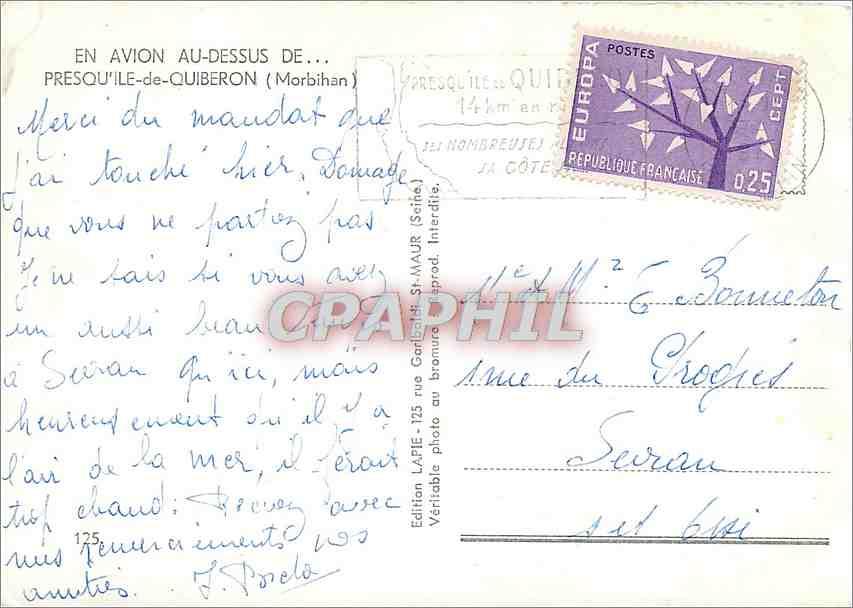 EN AVION AU-DESSUS DE...
PRESQU'ILE-de-QUIBERON (Morbihan)
Merci du mandat que
j'ai touché hier. Domage
que vous ne partiez pas.
Je ne sais si vous avez
un aussi beau
à Sevran qu'ici, mais
heureusement qu'il y a
l'air de la mer, il ferait
trop chaud. Recevez avec
mes remerciements nos
amitiés.
125
Edition LAPIE - 125 rue Garibaldi St-MAUR (Seine)
Véritable photo au bromure Reprod. Interdite.
PRESQU'ILE DE QUIB
14 km en
SES NOMBREUSES
SA CÔTE
EUROPA
POSTES
CEPT
REPUBLIQUE FRANÇAISE
0,25
CPAPHIL
Bonneton
rue du Progrès
Sevran